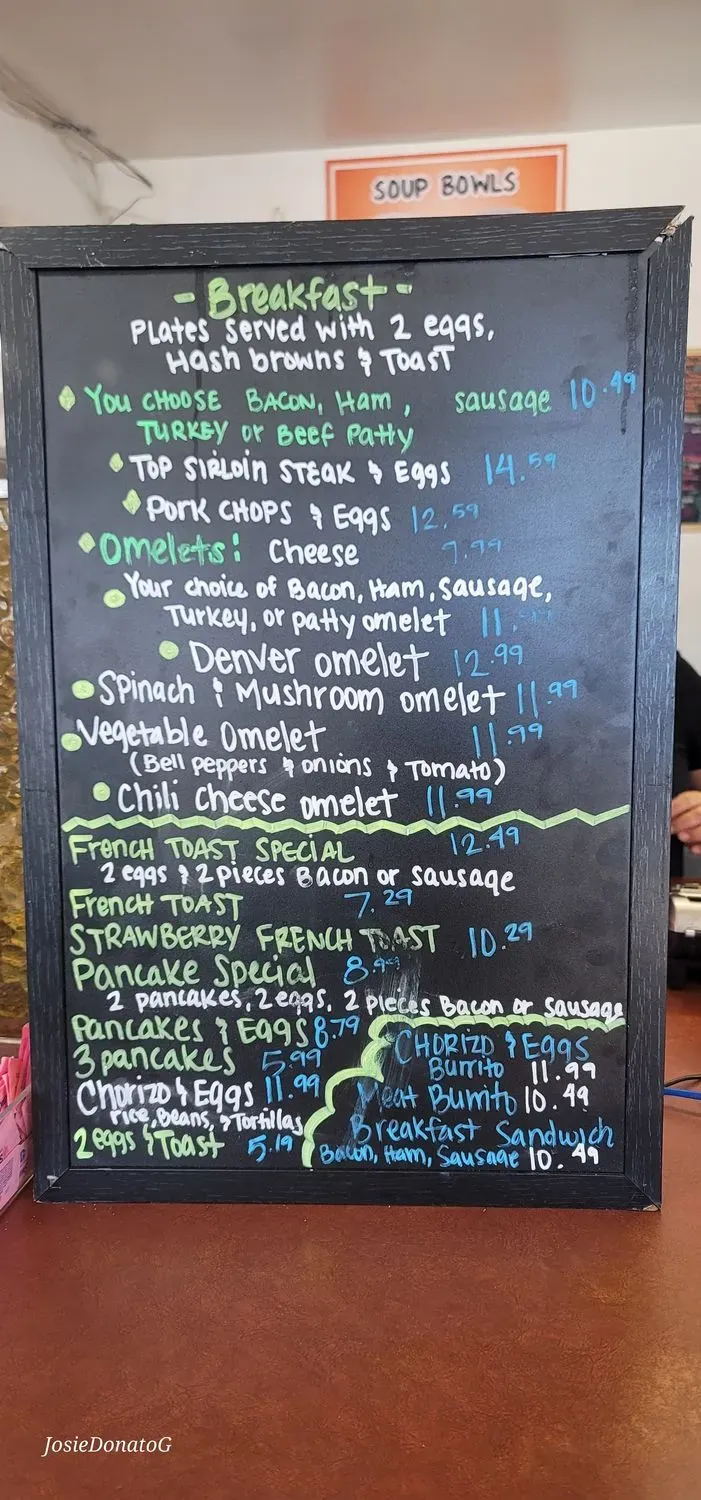 SOUP BOWLS
- Breakfast -
Plates served with 2 eggs,
Hash browns & Toast
You CHOOSE BACON, Ham, sausage 10.49
TURKEY or Beef Patty
TOP SIRLOIN STEAK & Eggs 14.59
PORK CHOPS & Eggs 12.59
Omelets: Cheese 9.99
Your choice of Bacon, Ham, Sausage,
Turkey, or patty omelet 11.99
Denver omelet 12.99
Spinach & Mushroom omelet 11.99
Vegetable Omelet 11.99
(Bell peppers & onions & Tomato)
Chili cheese omelet 11.99
French TOAST SPECIAL 12.49
2 eggs & 2 pieces Bacon or sausage
French TOAST 7.29
STRAWBERRY FRENCH TOAST 10.29
Pancake Special 8.99
2 pancakes, 2 eggs, 2 pieces Bacon or sausage
Pancakes & Eggs 8.79
3 pancakes 5.99
Chorizo & Eggs 11.99
rice, Beans, & Tortillas
2 eggs & Toast 5.19
CHORIZO & Eggs
Burrito 11.99
Meat Burrito 10.49
Breakfast Sandwich
Bacon, Ham, Sausage 10.49
JosieDonatoG